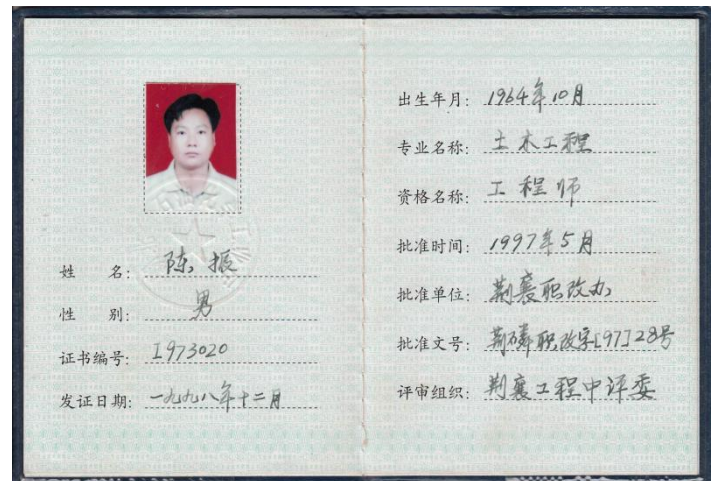 姓 名: 陈振
性 别: 男
证书编号: I973020
发证日期: 一九九八年十二月
出生年月: 1964年10月
专业名称: 土木工程
资格名称: 工程师
批准时间: 1997年5月
批准单位: 荆襄职改办
批准文号: 荆磷职改字[97]28号
评审组织: 荆襄工程中评委